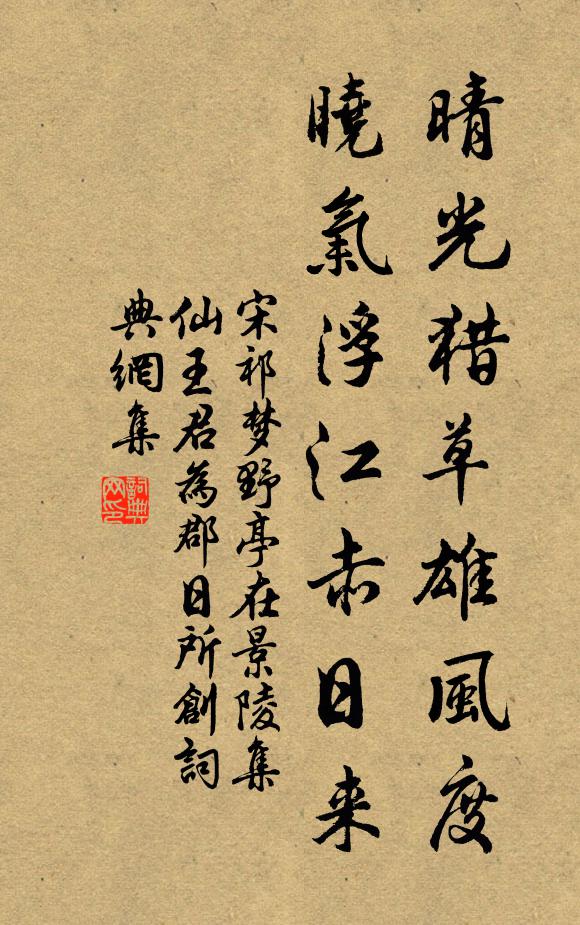 晴光猎草雄風度
曉氣浮江赤日来
宋祁梦野亭在景陵集
仙王君為郡日所創詞
典網集
詞典网印